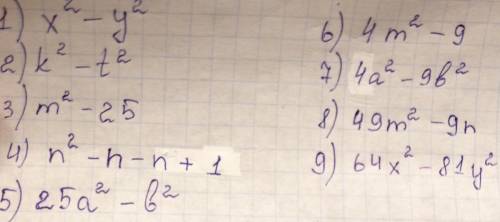 1) x² - y²
2) k² - t²
3) m² - 25
4) n² - n - n + 1
5) 25a² - b²
6) 4m² - 9
7) 4a² - 9b²
8) 49m² - 9n
9) 64x² - 81y²